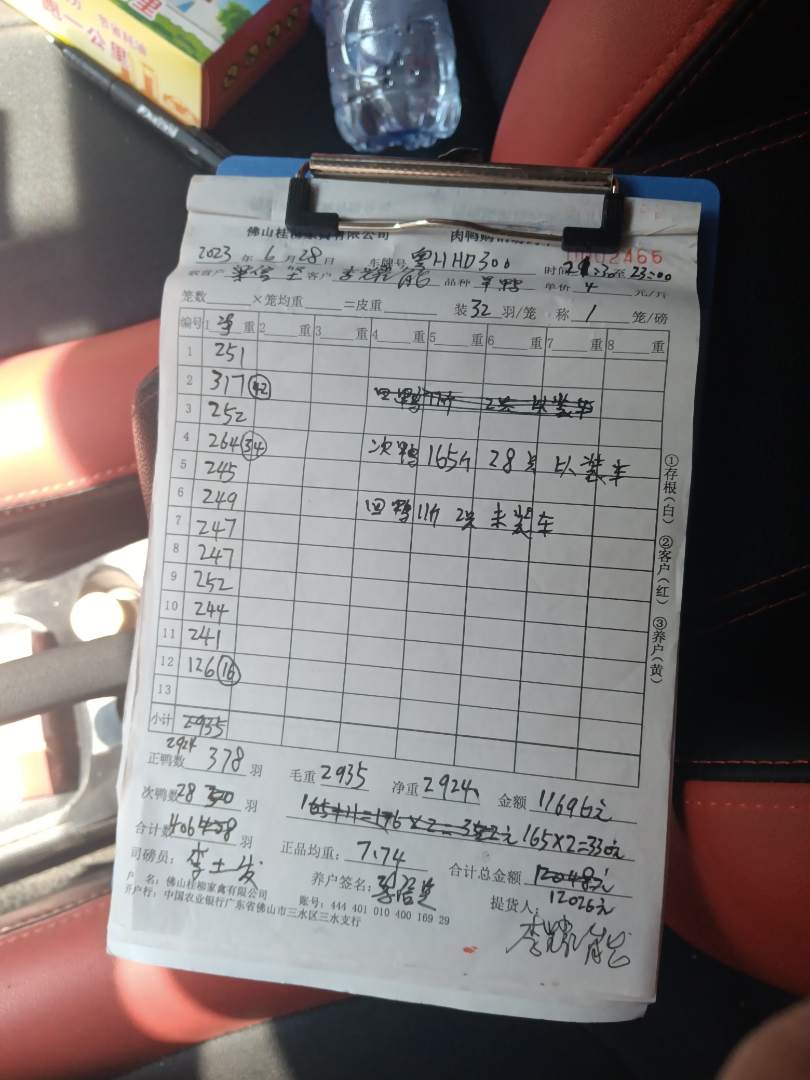 跑一公里
佛山桂柳家禽有限公司
2023 年 6 月 28 日 车牌号 粤HHD300
客户 李耀能 品种 单价 4 元/斤
笼数 ×笼均重 =皮重 装 32 羽/笼 称 1 笼/磅
编号 1 净 重 2 重 3 重 4 重 5 重 6 重 7 重 8 重
1 251
2 317 42
3 252
4 264 34 次鸭 165斤 28只 以装车
5 245
6 249 回鸭 11斤 2只 未装车
7 247
8 247
9 252
10 244
11 241
12 126 16
13
小计 2935
2924
正鸭数 378 羽 毛重 2935 净重 2924 金额 11696元
次鸭数 28 羽 165+11=176×2=352元 165×2=330元
合计数 406 羽 正品均重: 7.74 合计总金额 12048元
12026元
司磅员: 李土发 养户签名: 提货人: 李耀能
户 名: 佛山桂柳家禽有限公司 账号: 444 401 010 400 169 29
开户行: 中国农业银行广东省佛山市三水区三水支行
①存根(白) ②客户(红) ③养户(黄)